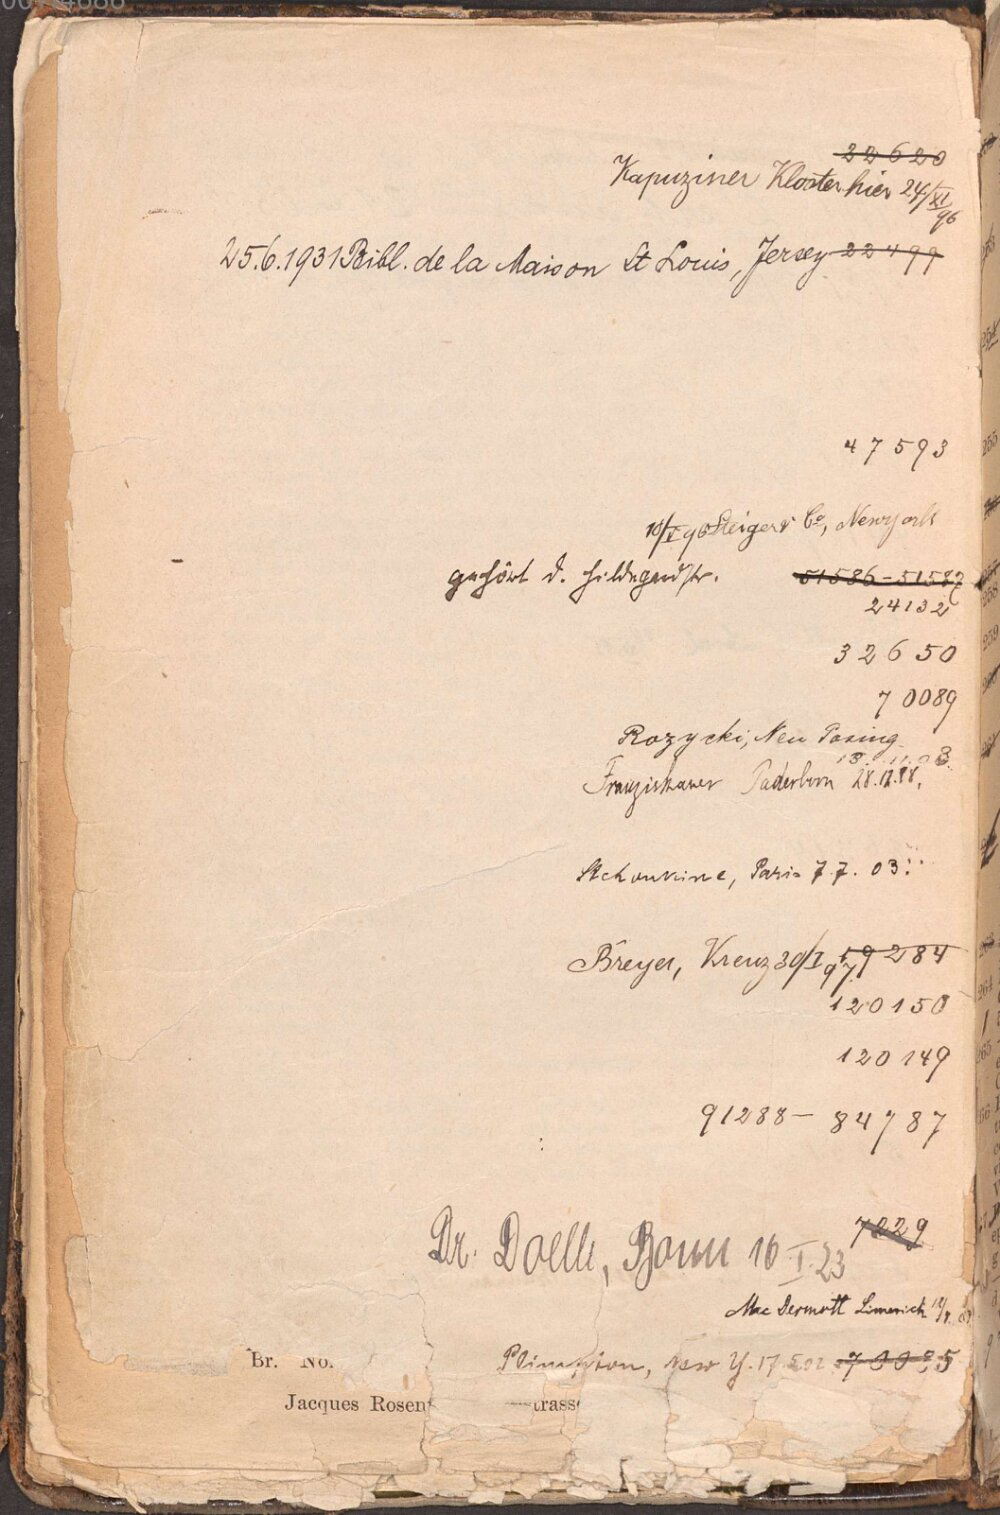 22620
Kapuziner Kloster hier 24/XI 96
25.6.1931 Bibl. de la Maison St Louis, Jersey 22499
47593
10/I 96 Steiger & Co, Newyork
gehört d. Hildegardstr. 51586-51587
24132
32650
70089
Rozycki, Neu Pasing
Franziskaner Paderborn 28.12.98.
Paris 7.7.03.
Breyer, Kreuz 30/I 97 59284
120150
120149
91288 - 84787
7229
Dr. Doelle, Bonn 16 I. 23
Mac Dermott Limerich
Br. No. Plimpton, New Y. 17. 70035
Jacques Rosen trass